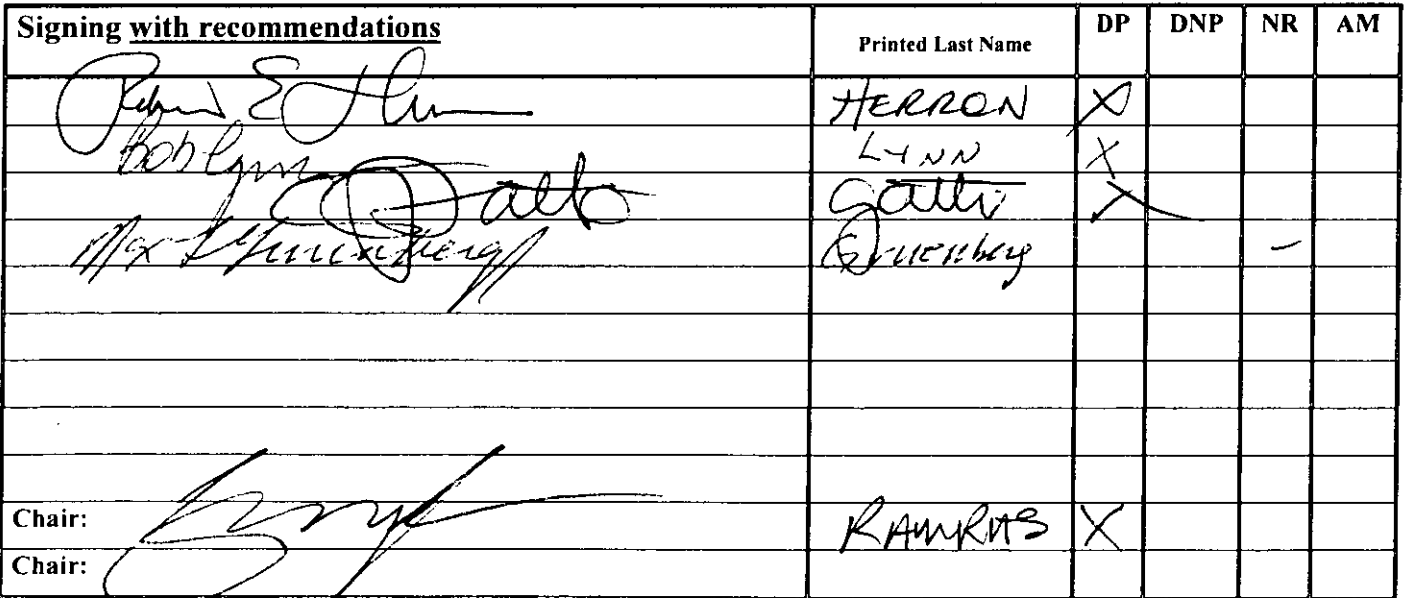 Signing with recommendations Printed Last Name DP DNP NR AM
HERRON X
Bob Lynn LYNN X
Gatto X
Max Gruenberg Gruenberg -
Chair: RAMRAS X
Chair: